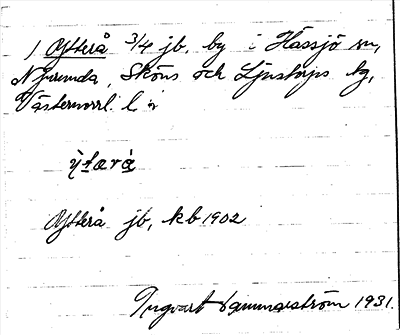 1 Ytterå 3/4 jb. by i Hässjö sn,
Njurunda, Sköns och Ljustorps tg,
Västernorrl. l.
ỳtərà̤
Ytterå jb, kb 1902
Ingvart Hammarström 1931.